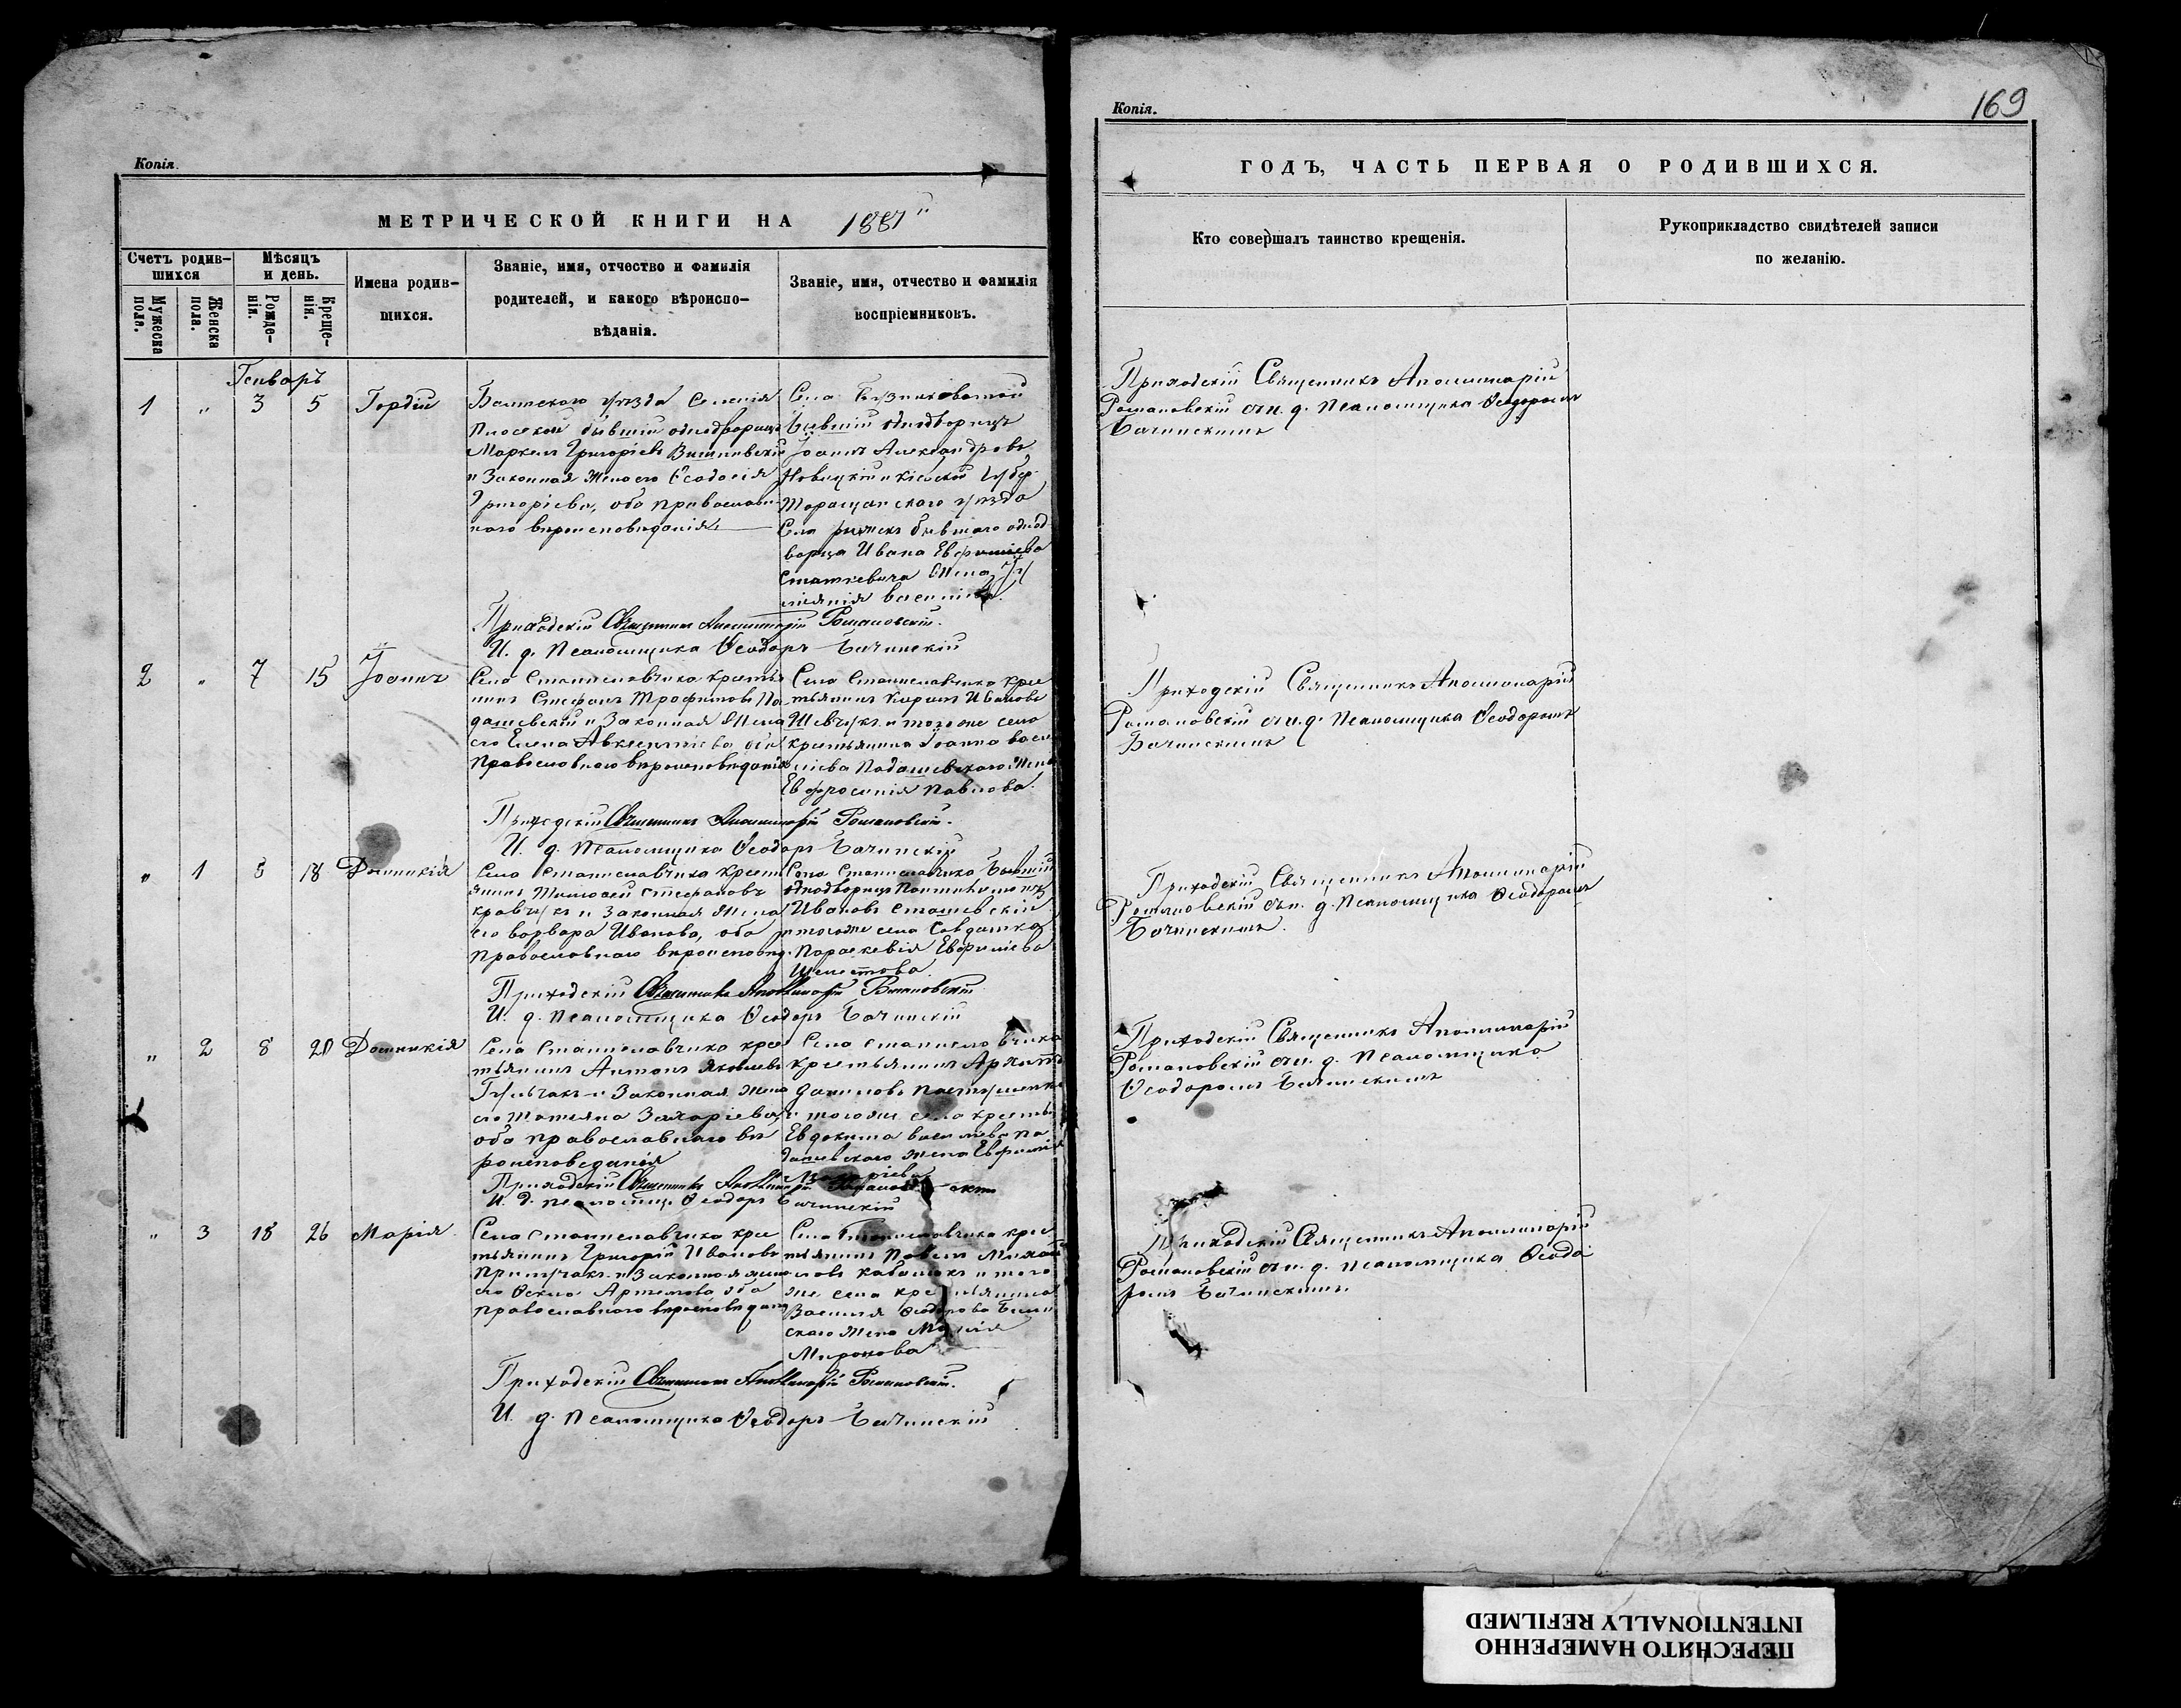 Копія.
МЕТРИЧЕСКОЙ КНИГИ НА 1887
Счетъ родив-
шихся
Мужеска
пола.
Женска
пола.
Мѣсяцъ
и день.
Рожде-
нія.
Креще-
нія.
Имена родив-
шихся.
Званіе, имя, отчество и фамилія
родителей, и какого вѣроиспо-
вѣданія.
Званіе, имя, отчество и фамилія
воспріемниковъ.
Генваръ
1 " 3 5 Гордій
Балтскаго уѣзда Селенія
Плоской бывшій однодворецъ
Маркелъ Григоріевъ Вишневскій
и Законная Жена его Ѳеодосія
Григоріева, оба православ-
наго вѣроисповѣданія
Села
бывшій однодворецъ
Іоаннъ Александровъ
Новицкій и Кіевской Губер.
Таращанскаго уѣзда
Села бывшаго однод
ворца Ивана
Статкевича Жена
Приходскій Священникъ Аполлинарій Романовскій.
И. д. Псаломщика Ѳеодоръ Бачинскій
2 " 7 15 Іоаннъ
Села Станиславчика кресть
нинъ Стефанъ Трофимовъ По
дашевскій и Законная Жена
его Елена Авксентіева оба
Православнаго вѣроисповѣданія
Села Станиславчика крес
тьянинъ Кириллъ Ивановъ
Шевчукъ и того же села
крестьянина Іоанна Васи
ліева Подашевскаго Жена
Евфросинія Павлова.
Приходскій Священникъ Аполлинарій Романовскій.
И. д. Псаломщика Ѳеодоръ Бачинскій
" 1 8 18 Домникія
Села Станиславчика крест
янинъ Тимофей Стефановъ
Кравчукъ и Законная Жена
его Варвара Иванова, оба
православнаго вѣроисповѣд.
Села Станиславчика Бывшій
однодворецъ
Ивановъ Сташевскій
и тогоже села Солдатка
Параскевія
Приходскій Священникъ Аполлинарій Романовскій
И. д. Псаломщика Ѳеодоръ Бачинскій
" 2 8 20 Домникія
Села Станиславчика крес
тьянинъ Антонъ Яковлевъ
и Законная Жена
его Татьяна Захаріева,
оба православнаго вѣ
роисповеданія
Села Станиславчика
крестьянинъ
Даниловъ
и тогоже села кресть
Евдокима Васильева По
дашевскаго жена
Приходскій Священникъ Аполлинарій
И. д. Псаломщ. Ѳеодоръ Бачинскій
" 3 18 26 Марія
Села Станиславчика крес
тьянинъ Григорій Ивановъ
и Законная жена
его Артемова оба
православнаго вѣроисповѣдан
Села Станиславчика крес
тьянинъ Павелъ Михай
ловъ и того
же села крестьянина
Василія Ѳеодорова
скаго Жена
Миронова
Приходскій Священникъ Аполлинарій Романовскій.
И. д. Псаломщика Ѳеодоръ Бачинскій
Копія.
169
ГОДЪ, ЧАСТЬ ПЕРВАЯ О РОДИВШИХСЯ.
Кто совершалъ таинство крещенія.
Рукоприкладство свидѣтелей записи
по желанію.
Приходскій Священникъ Аполлинарій
Романовскій съ и. д. Псаломщика Ѳеодоромъ
Бачинскимъ
Приходскій Священникъ Аполлинарій
Романовскій съ и. д. Псаломщика Ѳеодоромъ
Бачинскимъ
Приходскій Священникъ Аполлинарій
Романовскій съ и. д. Псаломщика Ѳеодоромъ
Бачинскимъ.
Приходскій Священникъ Аполлинарій
Романовскій съ и. д. Псаломщика
Ѳеодоромъ Бачинскимъ
Приходскій Священникъ Аполлинарій
Романовскій съ и. д. Псаломщика Ѳеодо
ромъ Бачинскимъ.
ПЕРЕСНЯТО НАМЕРЕННО
INTENTIONALLY REFILMED